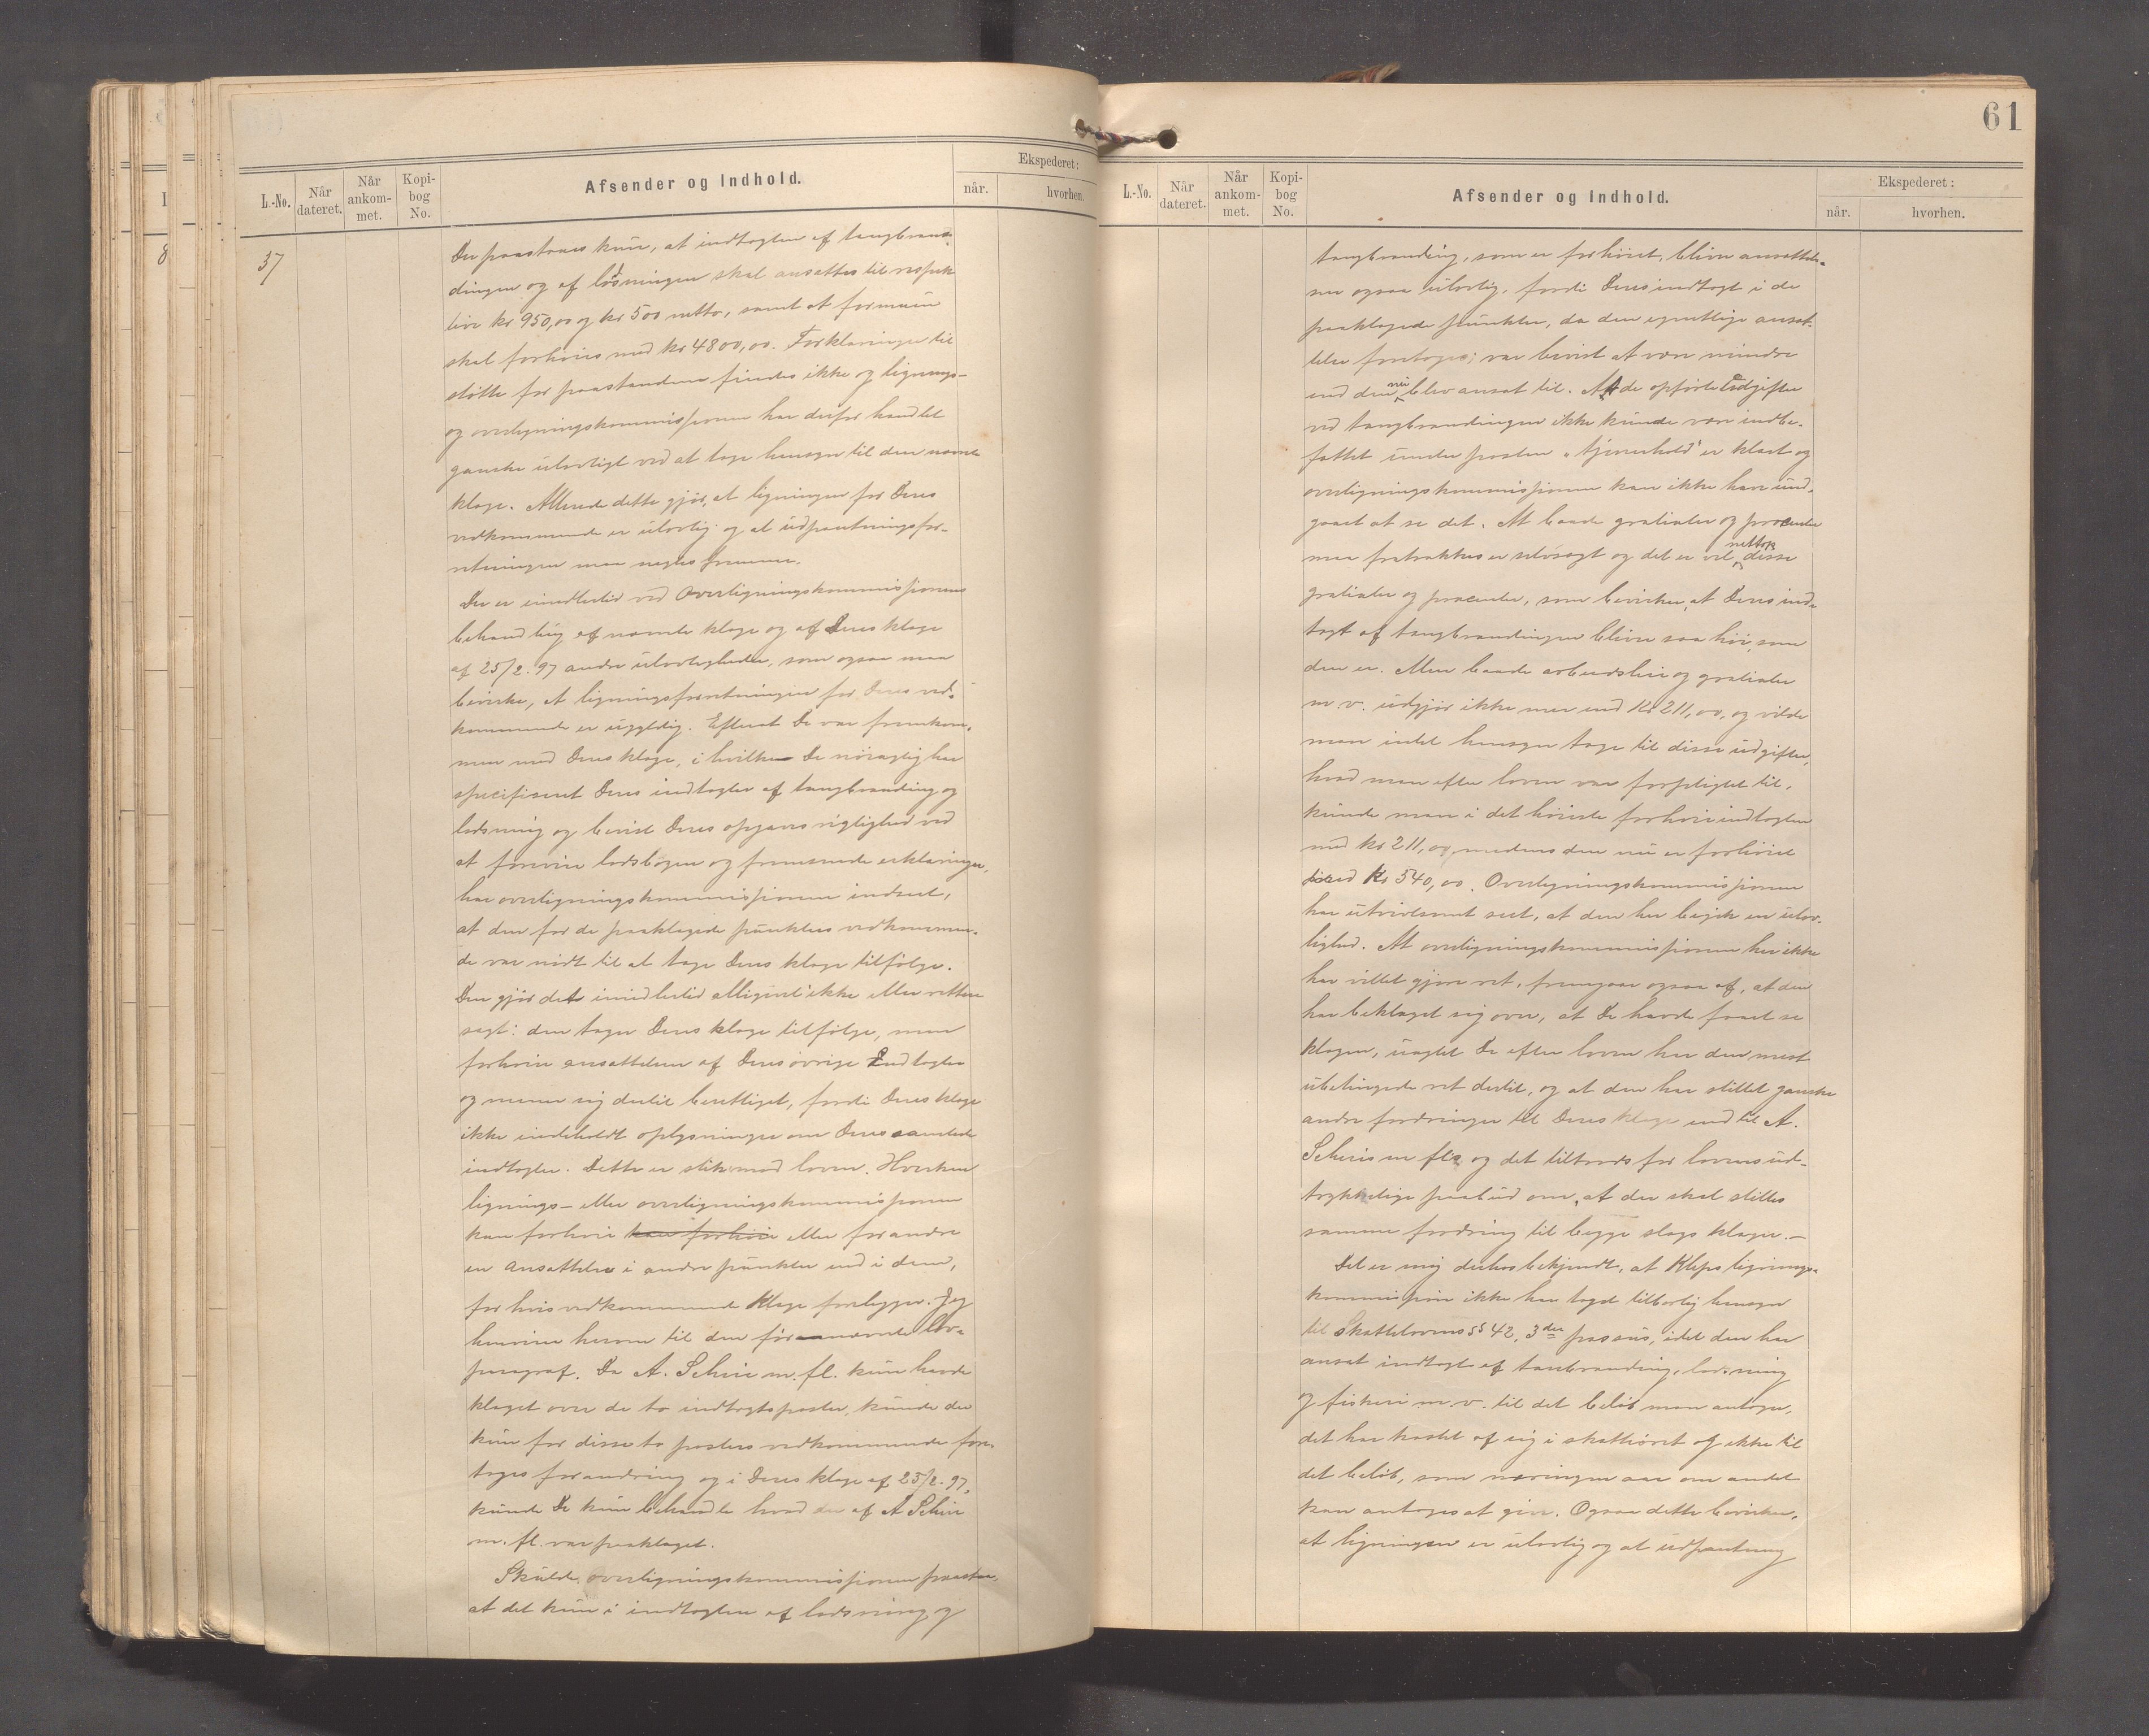 L.-No.
Når
dateret.
Når
ankom-
met.
Kopi-
bog
No.
Afsender og Indhold.
Ekspederet:
når.
hvorhen.
37
Der paastaaes kun, at indtægten af tangbræn-
dingen og af lodsningen skal ansættes til respek-
tive kr 950,00 og kr 500 netto, samt at formuen
skal forhøies med kr 4800,00. Forklaringer til
støtte for paastandene findes ikke og lignings-
og overligningskommissjonen har derfor handlet
ganske ulovligt ved at tage hensyn til den nævnte
klage. Allerede dette gjør, at ligningen for Deres
vedkommende er ulovlig og at udpantningsfor-
retningen maa nægtes fremme.
Der er imidlertid ved Overligningskommissjonens
behandling af nævnte klage og af Deres klage
af 25/2. 97 andre ulovligheder, som ogsaa maa
bevirke, at ligningsforretningen for Deres ved-
kommende er ugyldig. Efterat De var fremkom-
men med Deres klage, i hvilken De nøiagtig har
specificeret Deres indtægter af tangbrænding og
lodsning og bevist Deres opgaves rigtighed ved
at forevise lodsbogen og fremsende erklæringer,
har overligningskommissjonen indseet,
at den for de paaklagede punkters vedkommen-
de var nødt til at tage Deres klage tilfølge.
Den gjør det imidlertid alligevel ikke eller rettere
sagt: den tager Deres klage tilfølge, men
forhøier ansættelsen af Deres øvrige Indtægter
og mener sig dertil berettiget, fordi Deres klage
ikke indeholdt oplysninger om Deres samlede
indtægter. Dette er stik mod loven. Hverken
lignings- eller overligningskommissjonen
kan forhøie kan forhøie eller forandre
en Ansættelse i andre punkter end i dem,
for hvis vedkommende Klage foreligger. Jeg
henviser herom til den før nævnte lov-
paragraf. Da A. Scheie m. fl. kun havde
klaget over de to indtægtsposter, kunde der
kun for disse to posters vedkommende fore-
tages forandring og i Deres klage af 25/2. 97,
kunde De kun behandle hvad der af A Scheie
m. fl. var paaklaget.
Skulde overligningskommissjonen paastaa,
at det kun i indtægten af lodsning og
61
L.-No.
Når
dateret.
Når
ankom-
met.
Kopi-
bog
No.
Afsender og Indhold.
Ekspederet:
når.
hvorhen.
tangbrænding, som er forhøiet, bliver ansættel-
sen ogsaa ulovlig, fordi Deres indtægt i de
paaklagede punkter, da den egentlige ansæt-
telse foretoges, var bevist at være mindre
end den nu blev ansat til. At de opførte Udgifter
ved tangbrændingen ikke kunde være indbe-
fattet under posten "tjenerhold" er klart og
overligningskommissjonen kan ikke have und-
gaaet at se det. At baade gratialer og procenter
maa fratrækkes er selvsagt og det er vel nettop disse
gratialer og procenter, som bevirker, at Deres ind-
tægt af tangbrændingen bliver saa høi, som
den er. Men baade arbeidsløn og gratialer
m v. udgjør ikke mer end Kr 211,00, og vilde
man intet hensyn tage til disse udgifter,
hvad man efter loven var forpligtet til,
kunde man i det høieste forhøie indtægten
med kr 211,00 medens den nu er forhøiet
med Kr 540,00. Overligningskommissjonen
har utvivlsomt seet, at den her begik en ulov-
lighed. At overligningskommissjonen her ikke
har villet gjøre ret, fremgaar ogsaa af, at den
har beklaget sig over, at De havde faaet se
klagen, uagtet De efter loven har den mest
ubetingede ret dertil, og at den har stillet ganske
andre fordringer til Deres klage end til A.
Scheies m fl's og det tiltrods for lovens ud-
trykkelige paabud om, at der skal stilles
samme fordring til begge slags klager. –
Det er mig derhos bekjendt, at Kleps lignings-
kommissjon ikke har taget tilbørlig hensyn
til Skattelovens §§ 42, 3die passus, idet den har
ansat indtægt af tanbrænding, lodsning
og fiskeri m. v. til det beløb man antager,
det har kastet af sig i skatteaaret og ikke til
det beløb, som næringen aar om andet
kan antages at give. Ogsaa dette bevirker,
at ligningen er ulovlig og at udpantning